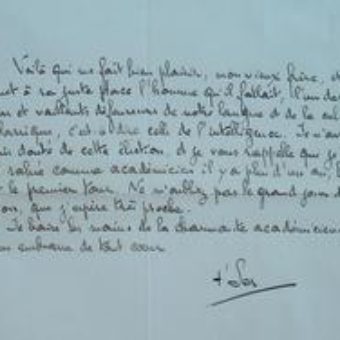 Voilà qui me fait bien plaisir, mon vieux frère, et
met à sa juste place l'homme qu'il fallait, l'un des
et vaillants défenseurs de notre langue et de la cul
classique, c'est à dire celle de l'intelligence. Je n'av
douté de cette élection, et je vous rappelle que je
salué comme académicien il y a plus d'un an,
le premier tour. Ne m'oubliez pas le grand jour de
que j'espère très proche.
Je baise les mains de la charmante académicien
embrasse de tout cœur